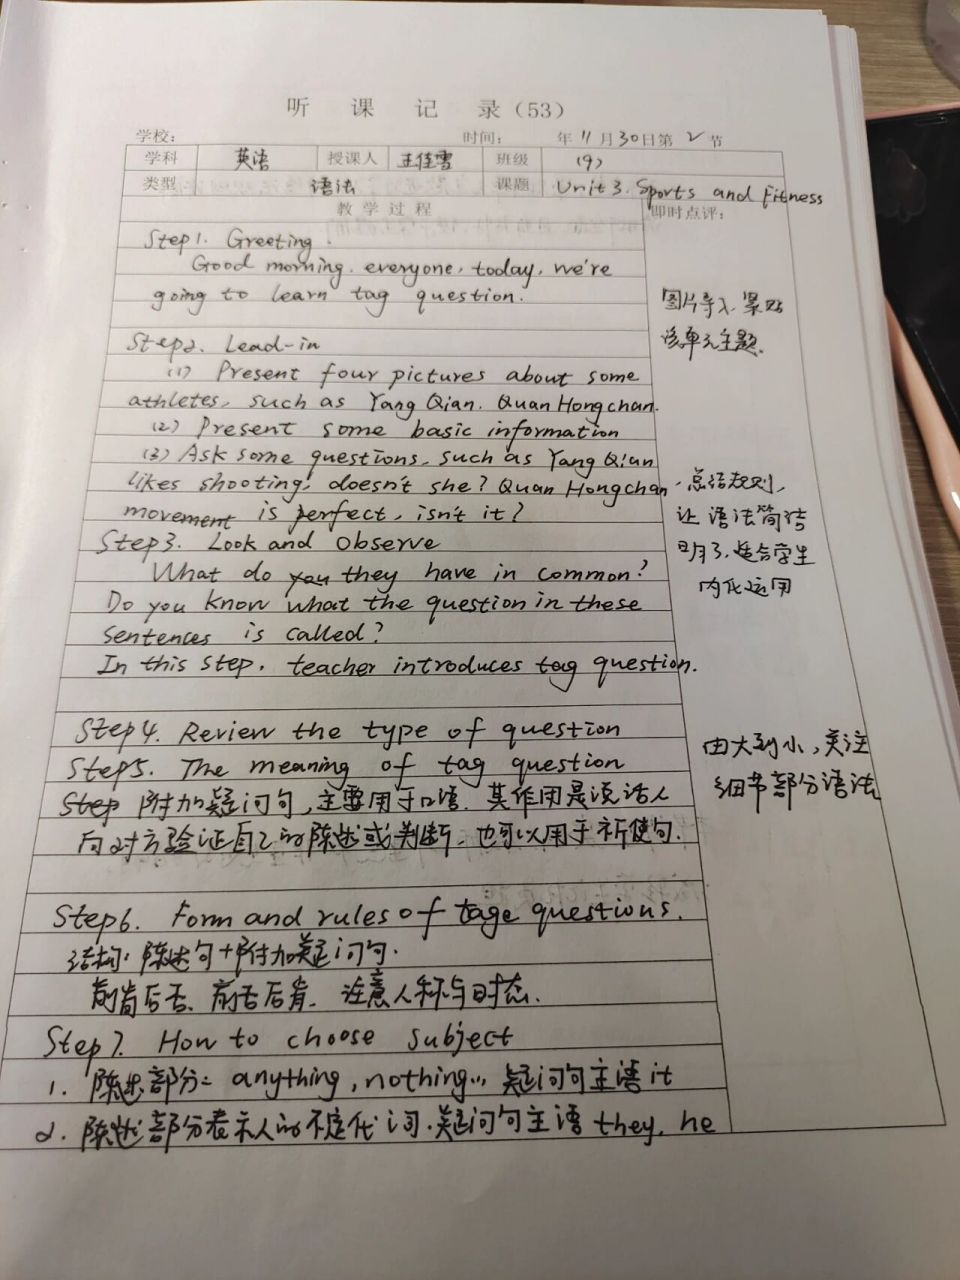 听 课 记 录（53）
学校： 时间： 年 11 月 30 日第 2 节
学科 英语 授课人 王佳雪 班级 (9)
类型 语法 课题 Unit 3. Sports and Fitness
教 学 过 程 即时点评：
Step1. Greeting.
Good morning. everyone, today, we're
going to learn tag question.
图片导入.紧贴
该单元主题.
Step2. Lead-in
(1) Present four pictures about some
athletes, such as Yang Qian. Quan Hongchan.
(2) Present some basic information
(3) Ask some questions, such as Yang Qian
likes shooting, doesn't she? Quan Hongchan
movement is perfect, isn't it?
总结规则,
让语法简洁
明了,适合学生
内化运用
Step3. Look and Observe
What do you they have in common?
Do you know what the question in these
sentences is called?
In this step, teacher introduces tag question.
Step4. Review the type of question
Step5. The meaning of tag question
Step 附加疑问句,主要用于口语.其作用是说话人
向对方验证自己的陈述或判断.也可以用于祈使句.
由大到小,关注
细节部分语法
Step6. Form and rules of tage questions.
结构:陈述句+附加疑问句.
前肯后否、前否后肯. 注意人称与时态.
Step7. How to choose subject
1. 陈述部分= anything, nothing... 疑问句主语it
2. 陈述部分表示人的不定代词.疑问句主语 they, he